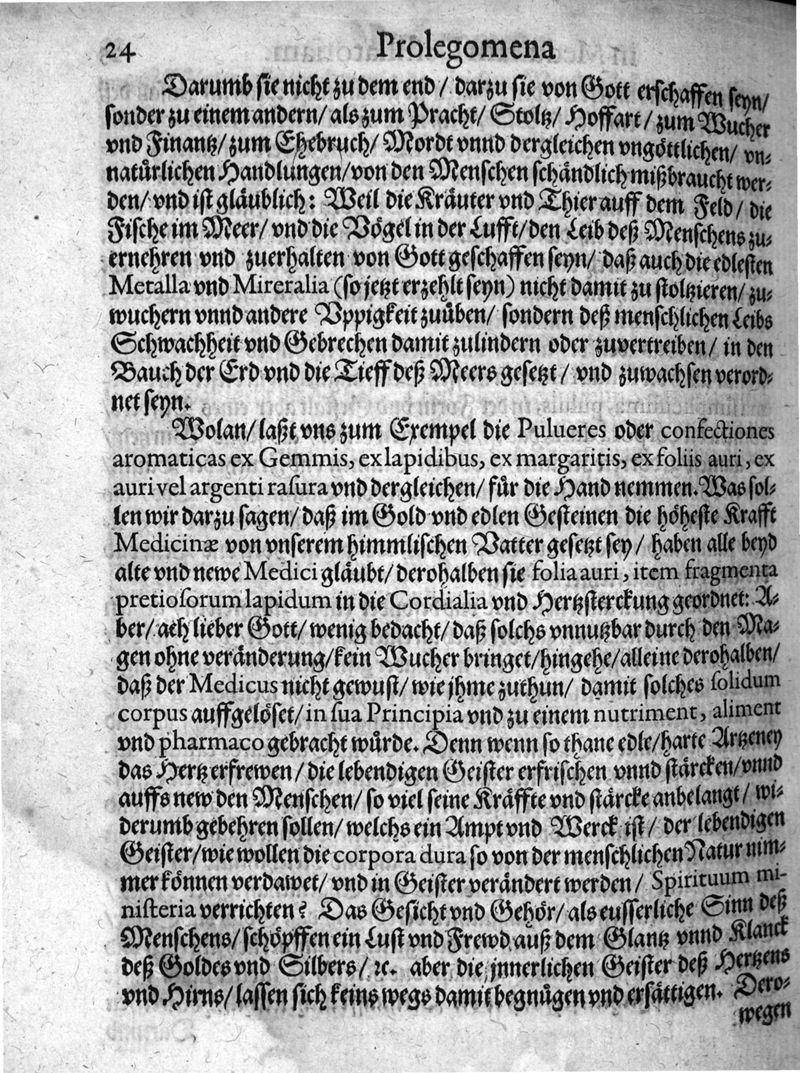 24 Prolegomena
Darumb sie nicht zu dem end / darzu sie von Gott erschaffen seyn /
sonder zu einem andern / als zum Pracht / Stoltz / Hoffart / zum Wucher
vnd Finantz / zum Ehebruch / Mordt vnnd dergleichen vngöttlichen / vn-
natürlichen Handlungen / von den Menschen schändlich mißbraucht wer-
den / vnd ist gläublich: Weil die Kräuter vnd Thier auff dem Feld / die
Fische im Meer / vnd die Vögel in der Lufft / den Leib deß Menschens zu-
ernehren vnd zuerhalten von Gott geschaffen seyn / daß auch die edlesten
Metalla vnd Mireralia (so jetzt erzehlt seyn) nicht damit zu stoltzieren / zu-
wuchern vnnd andere Vppigkeit zuüben / sondern deß menschlichen Leibs
Schwachheit vnd Gebrechen damit zulindern oder zuvertreiben / in den
Bauch der Erd vnd die Tieff deß Meers gesetzt / vnd zuwachsen verord-
net seyn.
Wolan / laßt vns zum Exempel die Pulueres oder confectiones
aromaticas ex Gemmis, ex lapidibus, ex margaritis, ex foliis auri, ex
auri vel argenti rasura vnd dergleichen / für die Hand nemmen. Was sol-
len wir darzu sagen / daß im Gold vnd edlen Gesteinen die höheste Krafft
Medicinæ von vnserem himmlischen Vatter gesetzt sey / haben alle beyd
alte vnd newe Medici gläubt / derohalben sie folia auri, item fragmenta
pretiosorum lapidum in die Cordialia vnd Hertzsterckung geordnet: A-
ber / ach lieber Gott / wenig bedacht / daß solchs vnnutzbar durch den Ma-
gen ohne veränderung / kein Wucher bringet / hingehe / alleine derohalben /
daß der Medicus nicht gewust / wie jhme zuthun / damit solches solidum
corpus auffgelöset / in sua Principia vnd zu einem nutriment, aliment
vnd pharmaco gebracht würde. Denn wenn so thane edle / harte Artzeney
das Hertz erfrewen / die lebendigen Geister erfrischen vnnd stärcken / vnnd
auffs new den Menschen / so viel seine Kräffte vnd stärcke anbelangt / wi-
derumb gebehren sollen / welchs ein Ampt vnd Werck ist / der lebendigen
Geister / wie wollen die corpora dura so von der menschlichen Natur nim-
mer können verdawet / vnd in Geister verändert werden / Spirituum mi-
nisteria verrichten? Das Gesicht vnd Gehör / als eusserliche Sinn deß
Menschens / schöpffen ein Lust vnd Frewd auß dem Glantz vnnd Klanck
deß Goldes vnd Silbers / ꝛc. aber die jnnerlichen Geister deß Hertzens
vnd Hirns / lassen sich keins wegs damit begnügen vnd ersättigen. Dero-
wegen